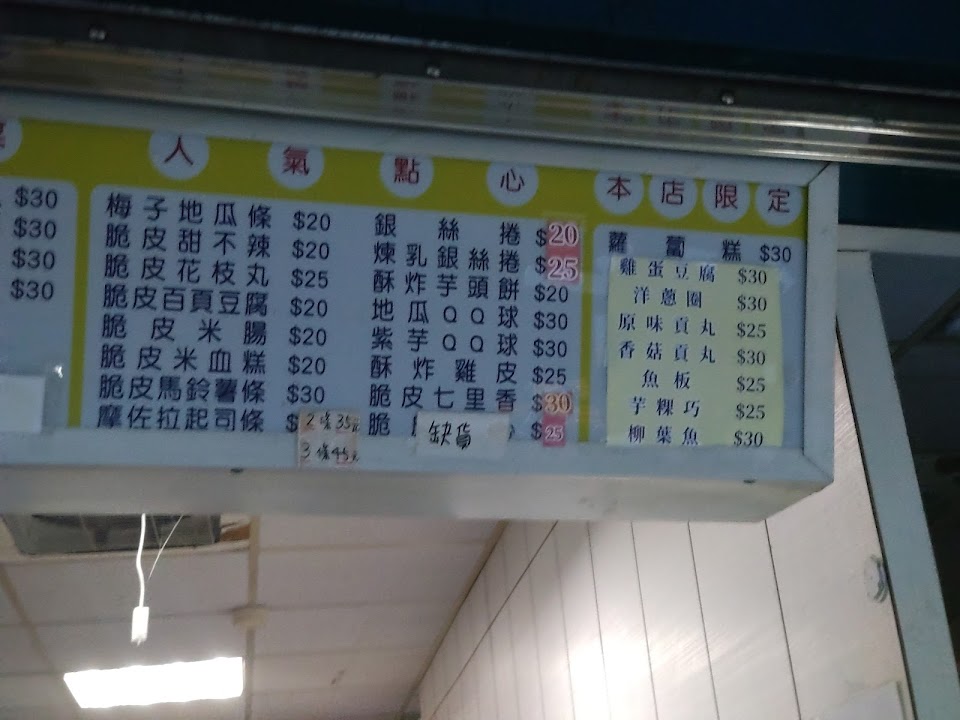 人氣點心
本店限定
$30
$30
$30
$30
梅子地瓜條 $20
脆皮甜不辣 $20
脆皮花枝丸 $25
脆皮百頁豆腐 $20
脆皮米腸 $20
脆皮米血糕 $20
脆皮馬鈴薯條 $30
摩佐拉起司條 $
2條35元
3條45元
銀絲捲 $20
煉乳銀絲捲 $25
酥炸芋頭餅 $20
地瓜QQ球 $30
紫芋QQ球 $30
酥炸雞皮 $25
脆皮七里香 $30
脆 缺貨 $25
蘿蔔糕 $30
雞蛋豆腐 $30
洋蔥圈 $30
原味貢丸 $25
香菇貢丸 $30
魚板 $25
芋粿巧 $25
柳葉魚 $30